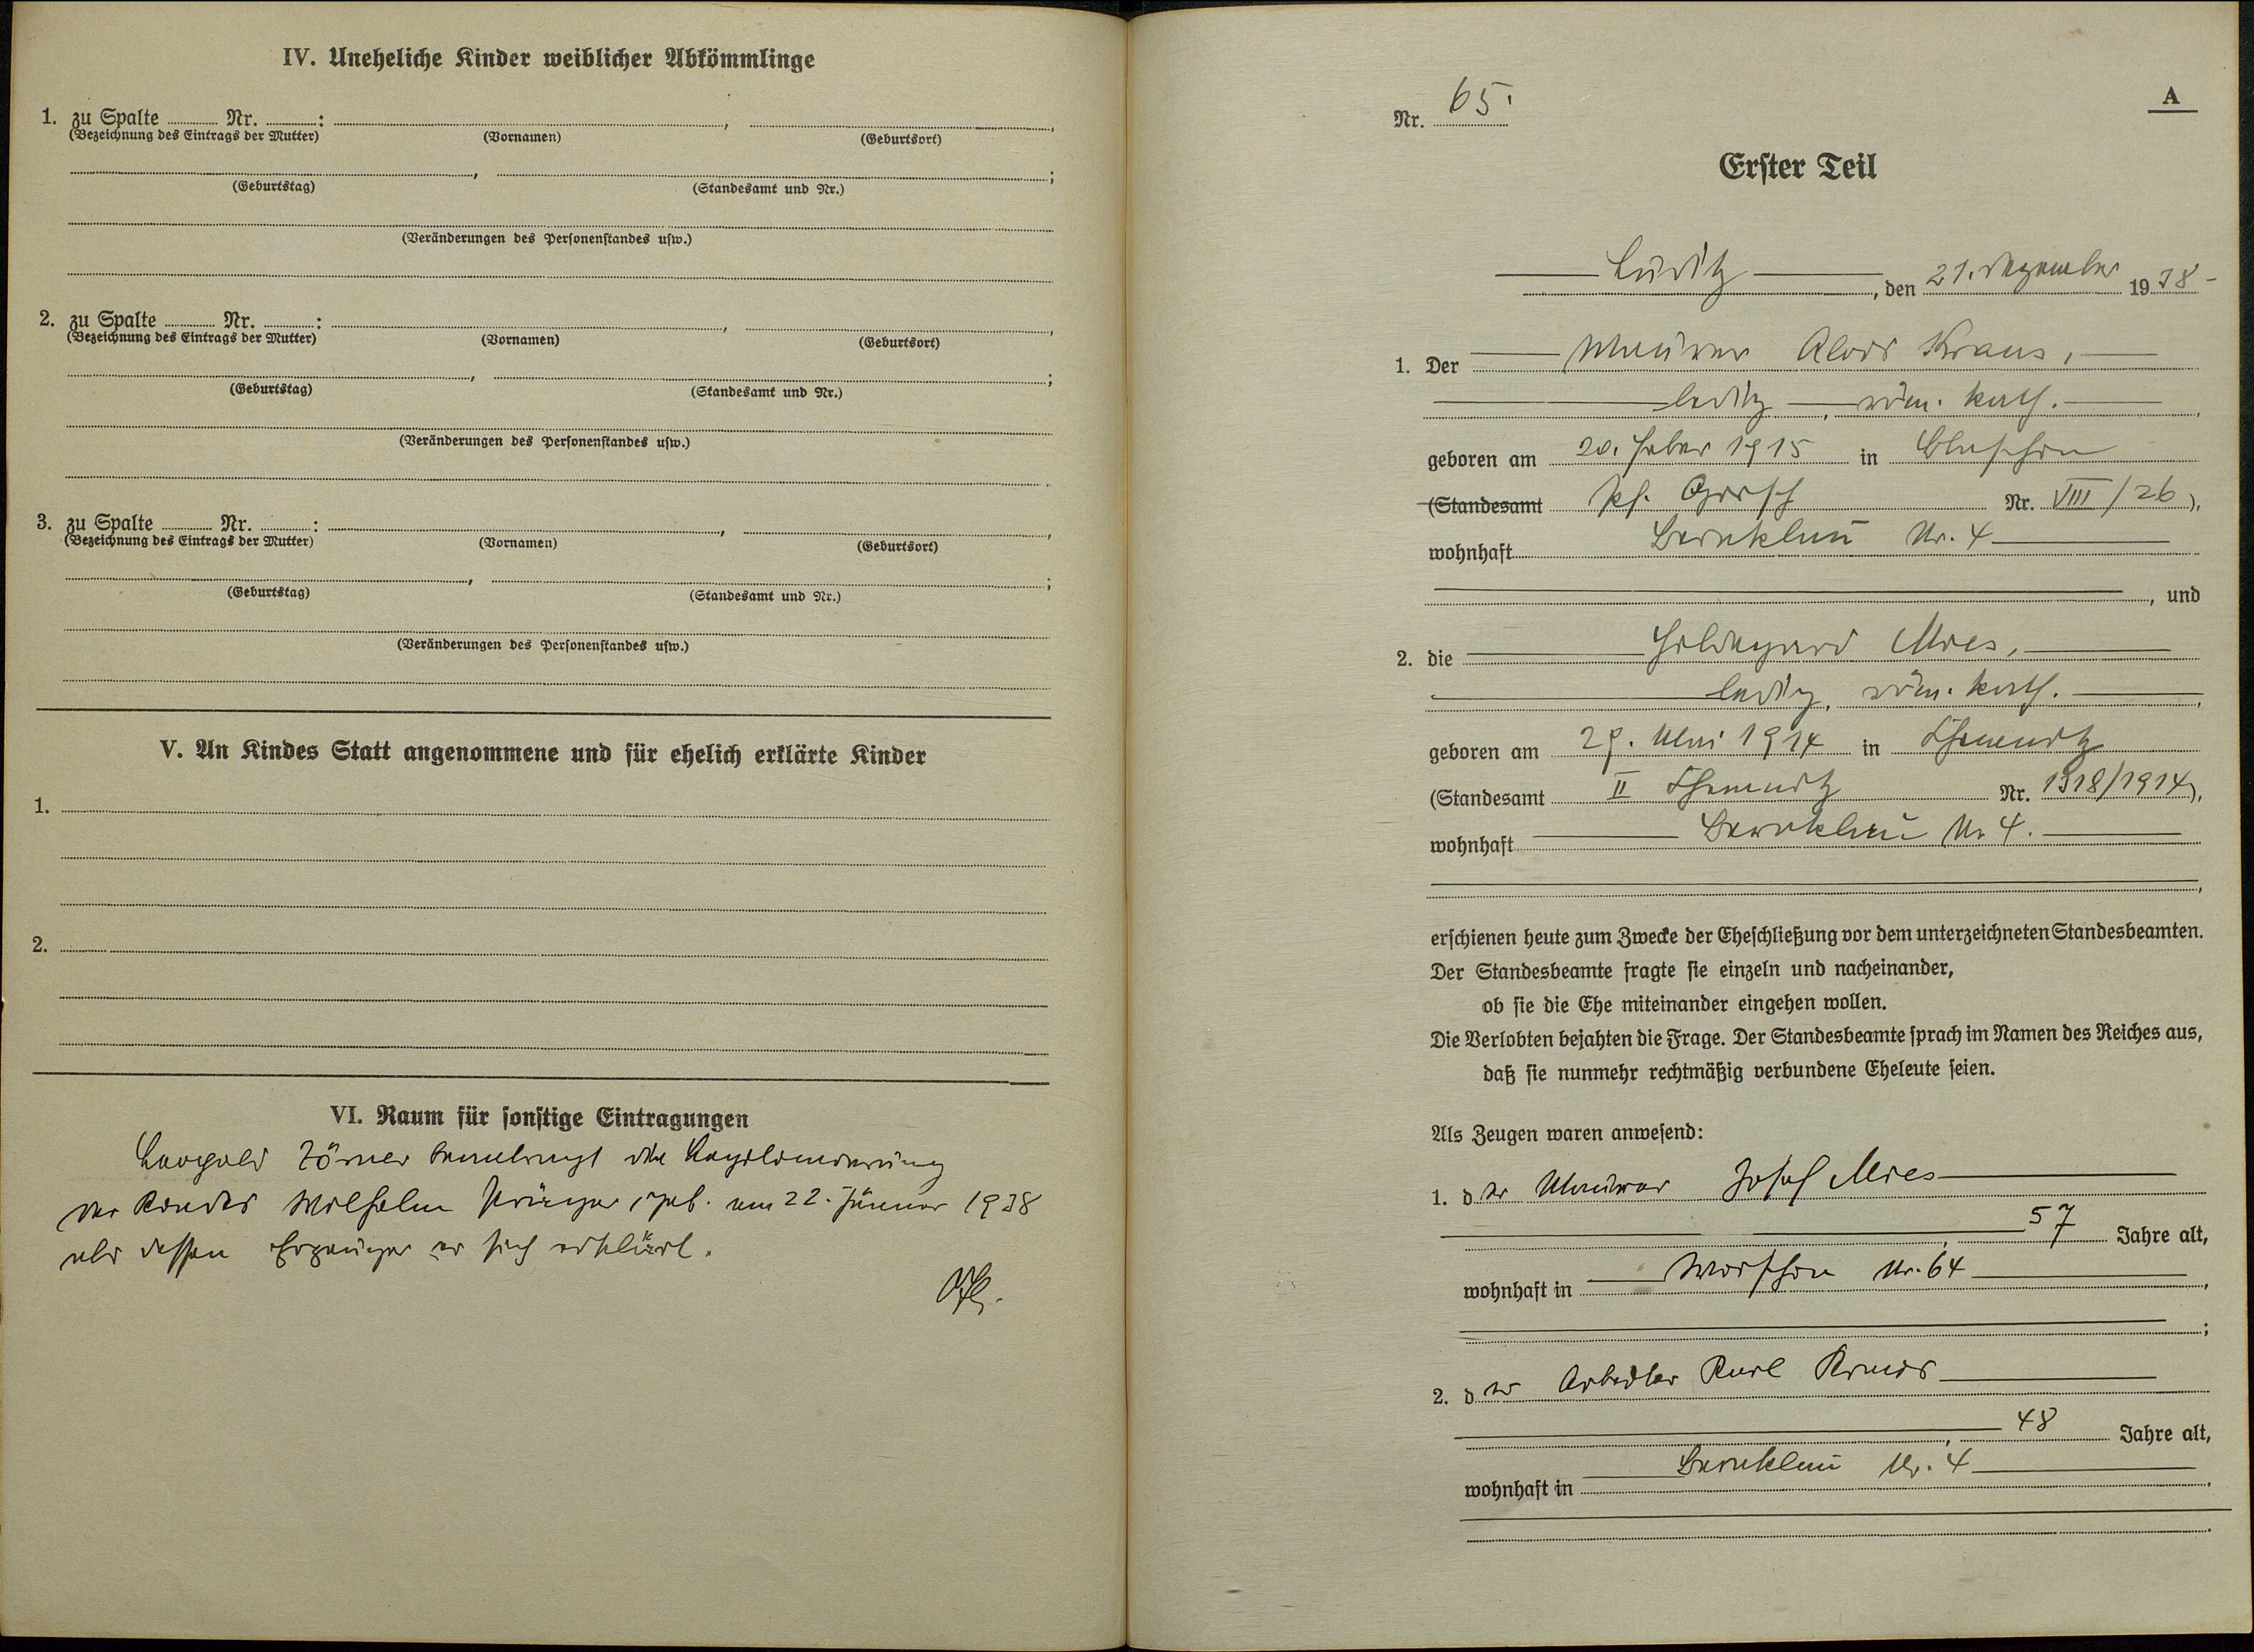 IV. Uneheliche Kinder weiblicher Abkömmlinge
1. zu Spalte ........ Nr. ........:
(Bezeichnung des Eintrags der Mutter) (Vornamen) (Geburtsort)
(Geburtstag) (Standesamt und Nr.)
(Veränderungen des Personenstandes usw.)
2. zu Spalte ........ Nr. ........:
(Bezeichnung des Eintrags der Mutter) (Vornamen) (Geburtsort)
(Geburtstag) (Standesamt und Nr.)
(Veränderungen des Personenstandes usw.)
3. zu Spalte ........ Nr. ........:
(Bezeichnung des Eintrags der Mutter) (Vornamen) (Geburtsort)
(Geburtstag) (Standesamt und Nr.)
(Veränderungen des Personenstandes usw.)
V. An Kindes Statt angenommene und für ehelich erklärte Kinder
1.
2.
VI. Raum für sonstige Eintragungen
Leopold Zörner beantragt die Legitimierung
des Kindes Wilhelm, geb. am 22. Jänner 1938
als dessen Erzeuger er sich erklärt.
Nr. 65.
A
Erster Teil
Luditz, den 21. Dezember 1938
1. Der Maurer Alois Kraus,
ledig, röm. kath.
geboren am 20. Feber 1915 in
(Standesamt Pf. Nr. VIII/26),
wohnhaft Bernklau Nr. 4
, und
2. die Hildegard Mies,
ledig, röm. kath.
geboren am 29. Mai 1914 in Chemnitz
(Standesamt II Chemnitz Nr. 1318/1914),
wohnhaft Bernklau Nr. 4.
erschienen heute zum Zwecke der Eheschließung vor dem unterzeichneten Standesbeamten.
Der Standesbeamte fragte sie einzeln und nacheinander,
ob sie die Ehe miteinander eingehen wollen.
Die Verlobten bejahten die Frage. Der Standesbeamte sprach im Namen des Reiches aus,
daß sie nunmehr rechtmäßig verbundene Eheleute seien.
Als Zeugen waren anwesend:
1. der Maurer Josef Mies
57 Jahre alt,
wohnhaft in Nr. 64
2. der Arbeiter Karl Kraus
48 Jahre alt,
wohnhaft in Bernklau Nr. 4